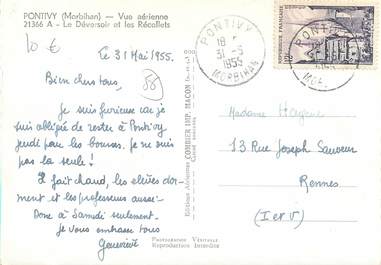 PONTIVY (Morbihan) — Vue aérienne
21366 A - Le Déversoir et les Récollets
10 €
Ce 31 Mai 1955.
58
Bien chers tous,
Je suis furieuse car je
suis obligée de rester à Pontivy
jeudi pour les bourses. Je ne suis
pas la seule !
Il fait chaud, les élèves dor-
ment et les professeurs aussi.
Donc à Samedi seulement.
Je vous embrasse tous
Geneviève
Editions Aériennes COMBIER IMP. MACON
PHOTOGRAPHIE VÉRITABLE
Reproduction Interdite
PONTIVY
18 H
31-5
1955
MORBIHAN
PONTIVY
Madame
13 Rue Joseph Sauveur
Rennes
(I et V)